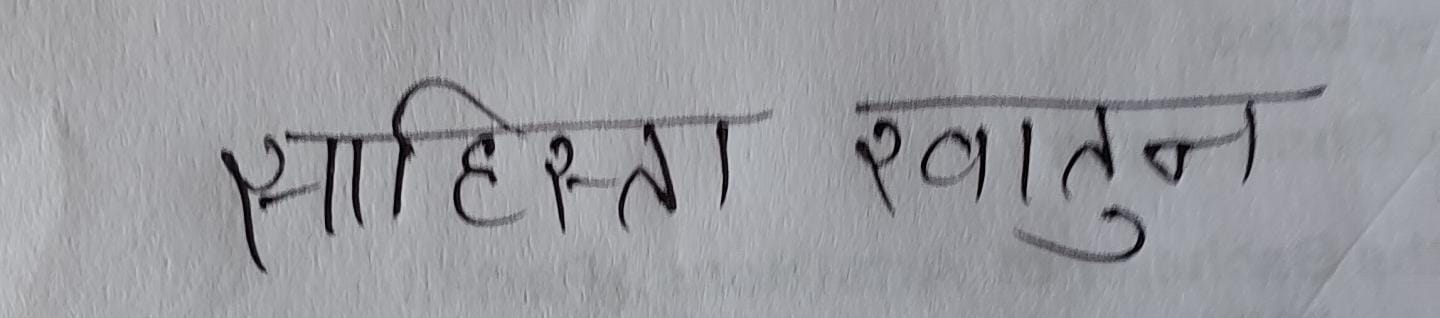 साहिस्ता खातुन